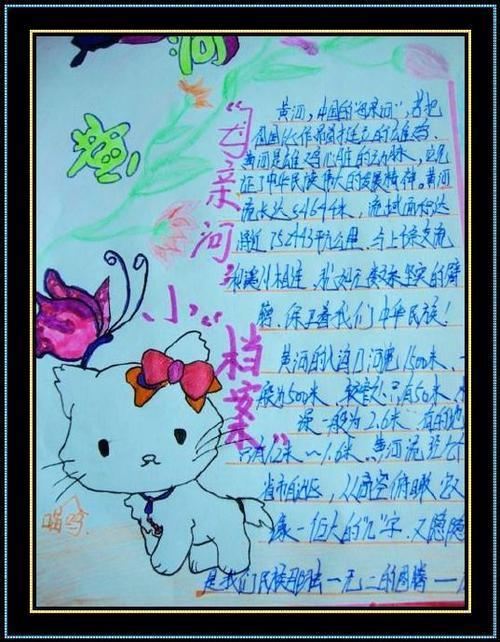 黄河
"母亲河"
小"档案"
黄河，中国的"母亲河"，若把
祖国比作昂首挺立的雄鸡，
黄河是雄鸡心脏的动脉，它见
证了中华民族伟大的发展精神。黄河
流长达5464千米，流域面积达
将近752443平方公里。与上千条支流
和溪川相连，犹如无数条坚实的臂
膀，保卫着我们中华民族！
黄河的入海口河宽1500米，一
般为500米，较窄处只有50米，水
深一般为2.6米，有的地
只有1.2米～1.6米。黄河流经九个
省市自治区，从高空俯瞰，它又
像一个巨大的"几"字，又隐隐
是我们民族那独一无二的图腾——